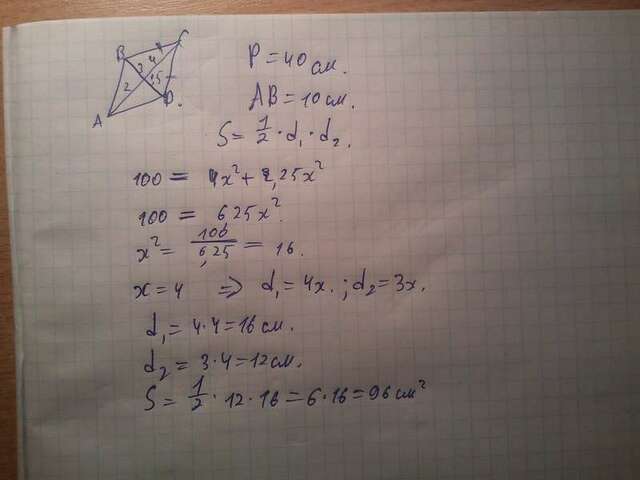 B C
3 4
2 1,5
A D.
P = 40 см.
AB = 10 см.
S = 1/2 · d₁ · d₂.
100 = 4x² + 2,25x²
100 = 6,25x².
x² = 100/6,25 = 16.
x = 4 => d₁ = 4x. ; d₂ = 3x.
d₁ = 4·4 = 16 см.
d₂ = 3·4 = 12 см.
S = 1/2 · 12 · 16 = 6·16 = 96 см²